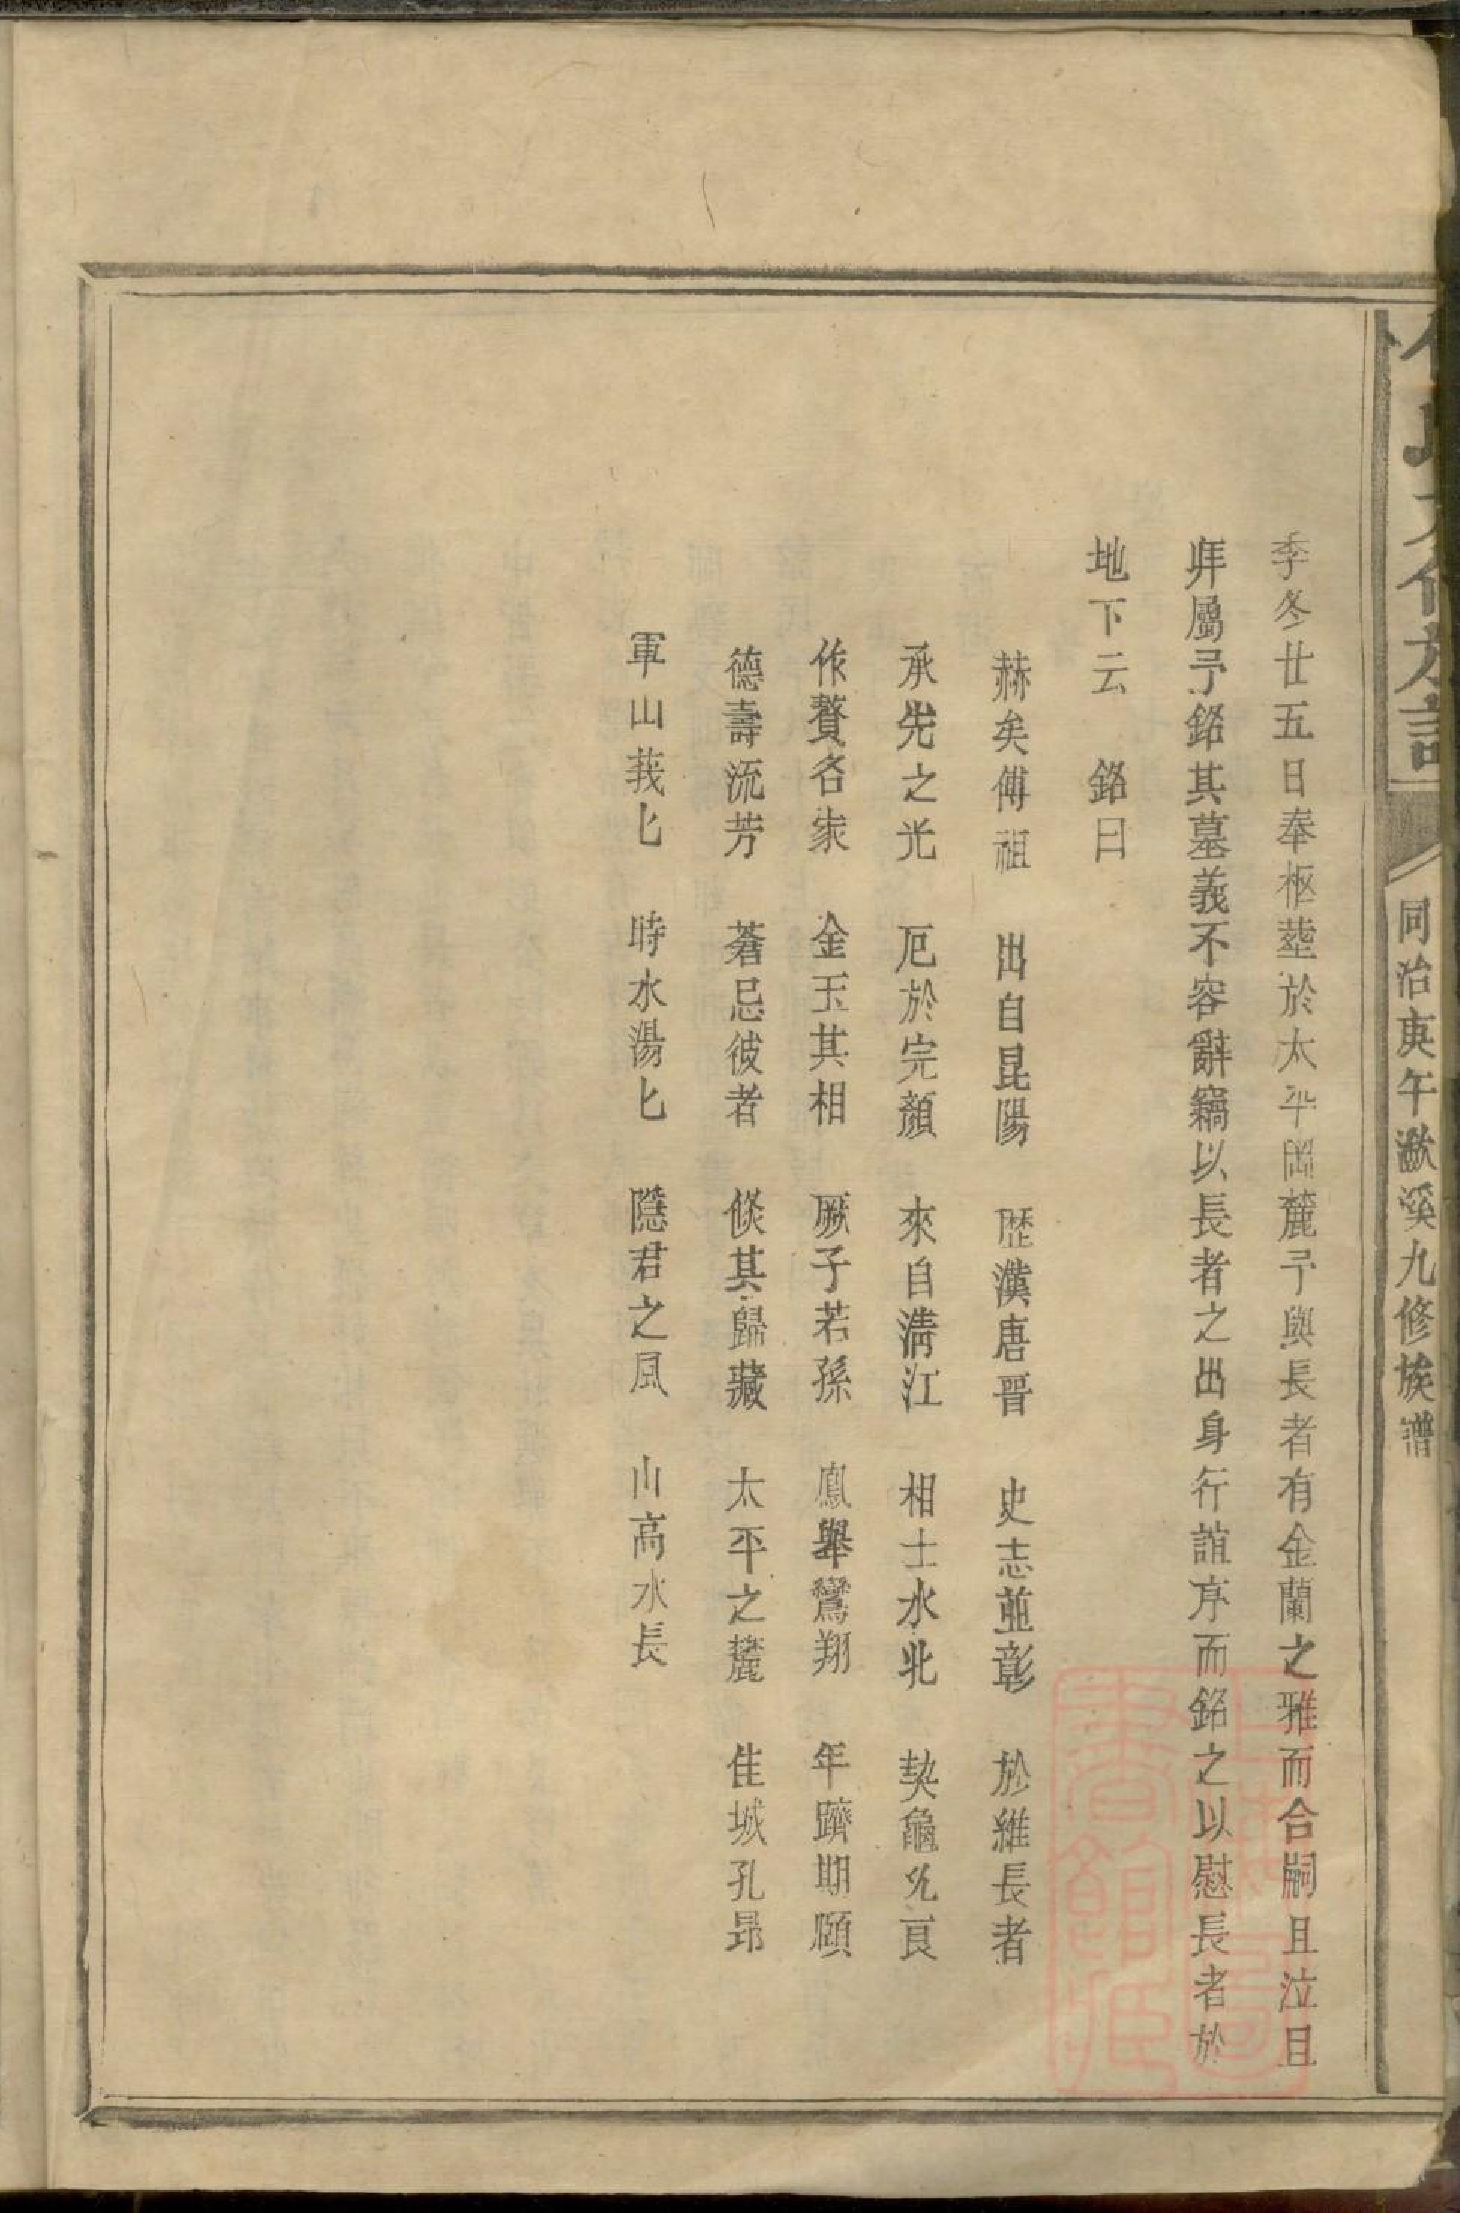 同治庚午潄溪九修族譜
季冬廿五日奉柩塟於太平岡麓予與長者有金蘭之雅而合嗣且泣且
拜屬予銘其墓義不容辭竊以長者之出身行誼序而銘之以慰長者於
地下云　銘曰
赫矣傅祖　出自昆陽　歴漢唐晋　史志並彰　於維長者
承先之光　厄於完顏　來自清江　相士水北　契龜允臧
作贅名家　金玉其相　厥子若孫　鳳舉鸞翔　年躋期頤
德壽流芳　蒼忌彼者　倐其歸藏　太平之麓　佳城孔昻
軍山莪匕　時水湯匕　隱君之風　山高水長